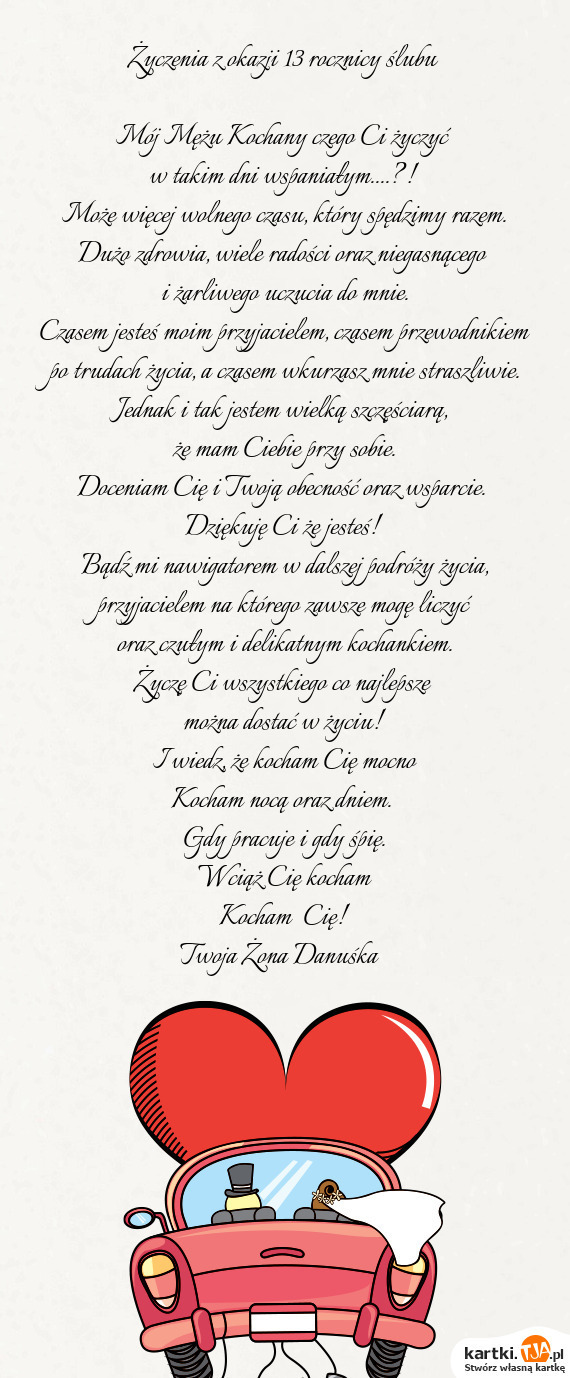 Życzenia z okazji 13 rocznicy ślubu
Mój Mężu Kochany czego Ci życzyć
w takim dni wspaniałym....?!
Może więcej wolnego czasu, który spędzimy razem.
Dużo zdrowia, wiele radości oraz niegasnącego
i żarliwego uczucia do mnie.
Czasem jesteś moim przyjacielem, czasem przewodnikiem
po trudach życia, a czasem wkurzasz mnie straszliwie.
Jednak i tak jestem wielką szczęściarą,
że mam Ciebie przy sobie.
Doceniam Cię i Twoją obecność oraz wsparcie.
Dziękuję Ci że jesteś!
Bądź mi nawigatorem w dalszej podróży życia,
przyjacielem na którego zawsze mogę liczyć
oraz czułym i delikatnym kochankiem.
Życzę Ci wszystkiego co najlepsze
można dostać w życiu!
I wiedz, że kocham Cię mocno
Kocham nocą oraz dniem.
Gdy pracuje i gdy śpię.
Wciąż Cię kocham
Kocham Cię!
Twoja Żona Danuśka
kartki.TJA.pl
Stwórz własną kartkę